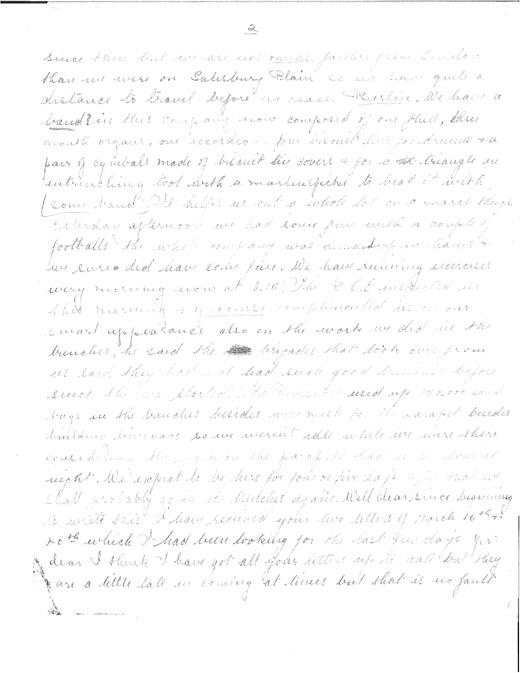 2
since then but we are not much farther from London
than we were on Salisbury Plain so we have quite a
distance to travel before we reach Berlin. We have a
band? in this company now composed of one flute, three
mouth organs, one accordeo.. four biscuit tins for drums & a
pair of cymbals made of biscuit tin covers & for a triangle an
intrenching tool with a marlinspike to beat it with
(some band) It helps us out a whole lot on a march though
Yesterday afternoon we had some fun with a couple of
footballs the whole company was divided up in teams &
we sure did have some fun. We have running exercises
every morning now at 6.15. The inspected us
this morning & of course complimented us on our
smart appearance also on the work we did in the
trenches, he said the brigades that took over from
us said they had not had such good before
since the war started. The used up 100,000 sand
bags in the trenches besides wire for the parapet besides
building bivouacs so we weren't idle while we were there
considering the on the parapets had to be done at
night. We expect to be here for four or five days after that we
shall probably go in the trenches again. Well dear, since beginning
to write this I have received your two letters of March 16th &
20th which I had been looking for the last few days. Yes
dear I think I have got all your letters up to date but they
are a little late in coming at times but that is no fault